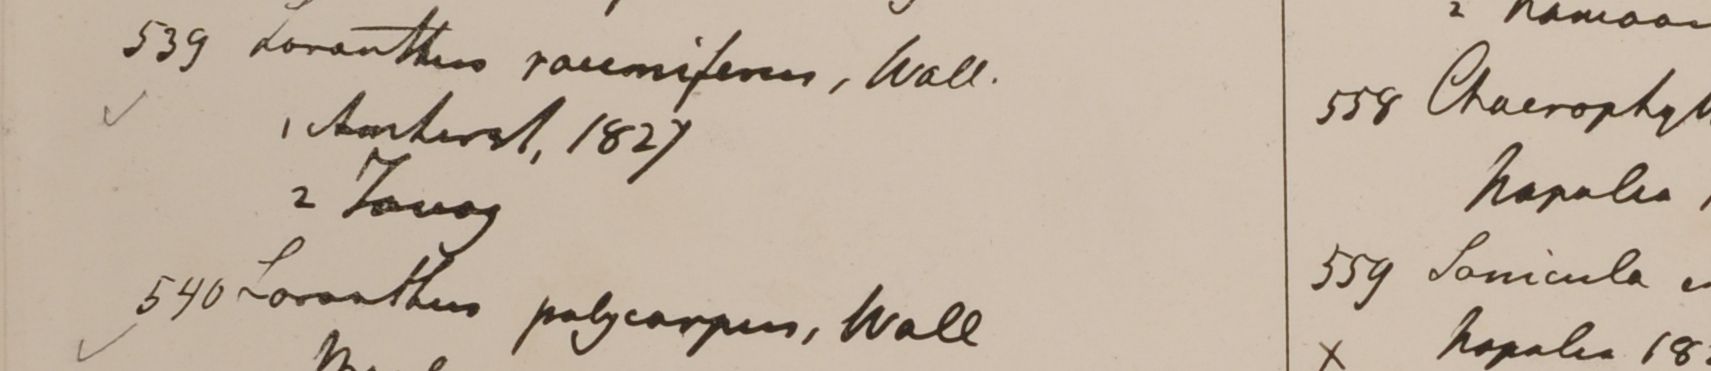 539 Loranthus racemiferus, Wall.
1 Amherst, 1827
2 Tavoy
540 Loranthus polycarpus, Wall
2
558 Chaerophyll
Napalia
559 Sanicula
x Napalia 18